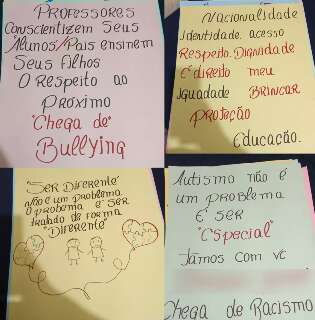 Professores
Conscientizem Seus
Alunos/Pais ensinem
Seus Filhos
O Respeito ao
Próximo
"Chega de"
Bullying
Nacionalidade
Identidade acesso
Respeito. Dignidade
É direito meu
Iguadade Brincar
Proteção
Educação.
Ser Diferente
Não é um problema
O probema é ser
tratado de forma
"Diferente"
Autismo não é
um problema
É ser
"Especial"
Tamos com vc
Chega de Racismo